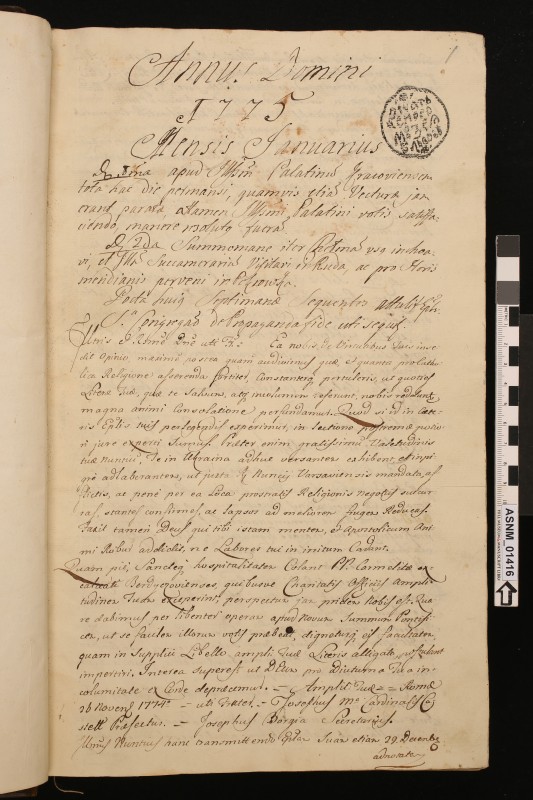 1
Annus Domini
1775
Mensis Januarius
Die 1ma apud Illsm Palatinum Kracoviensem
tota hac die permansi, quamvis etiam Vectura jam
erant parata, attamen Illsmi Palatini votis satisfa-
ciendo, manere
Die 2da Summo mane iter
vi, et Succamerarium Visitavi in Ruda, ac pro Horis
meridianis perveni in
Posta hujus Septimanae Sequentes attulit
S. Congregatio de Propaganda fide uti sequit.
Ea nobis de Virtutibus Tuis inse-
dit opinio, maxime postquam audivimus quae, et quanta pro Catho-
lica Religione asserenda fortiter, Constanterque pertuleris, ut quoties
Literae Tuae, quae te Salvum, atque incolumem referunt, nobis redduntur
magna animi Consolatione perfundamur. Quod si id in Caete-
ris
ri jure experti Sumus. Praeter enim gratissimum Valetudinis
tuae nuncium, Te in Ukraina adhuc versantem exhibent,
gre adlaborantem, ut juxta Nuncii Varsaviensis mandata,
flictis, ac pene per ea Loca prostratis Religionis negotiis succur-
ras, stantes confirmes, ac lapsos ad meliorem frugem Reducas.
Faxit tamen Deus qui tibi istam mentem, et Apostolicum Ani-
mi Robur addidit, ne Labores tui in irritum Cadant.
Quam pie, Sancteque hospitalitatem Colant PP. Carmelitae ex-
calceati Berdyczovienses, quibusve Charitatis Officiis Ampli-
tudinem Tuam exceperint, perspectum jam pridem Nobis est. Qua-
re dabimus perlibenter operam apud Novum Summum Pontifi-
cem, ut se facilem illorum votis praebeat, digneturque eis facultatem,
quam in Supplici Libello ampli Tuae Literis alligato, postulant
impertiri. Interea superest ut DEum pro diuturna Tua in-
columitate ex Corde deprecemur. — Amplit Tuae — Romae
26 Novembris 1774 — uti Frater. — Josephus Ma Cardinalis Ca-
stelli Praefectus. — Josephus Borgia Secretarius.
Illmus Nuntius hanc transmittendo Epistolam Suam etiam 29 Decembris